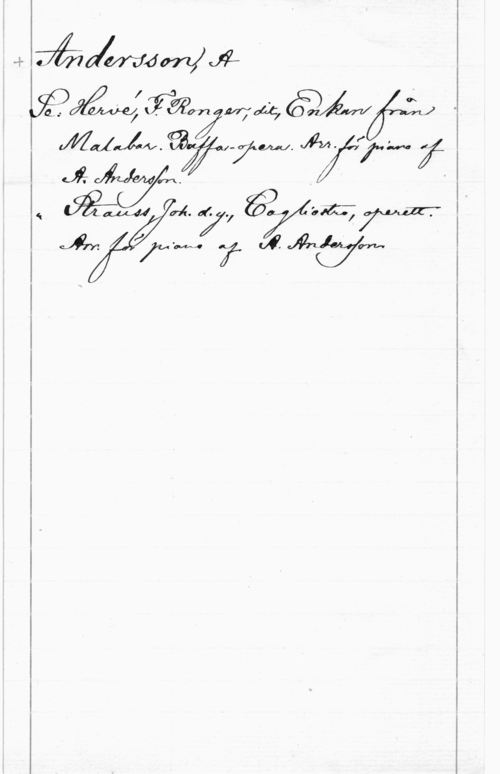 + Andersson, A
Se: Hervé, F. Ronger, dit, Enkan från
Malabar. Buffa-opera. Arr. för piano af
A. Anderson.
" Strauss, Joh. d. y., Cagliostro, operett.
Arr. för piano af A. Anderson